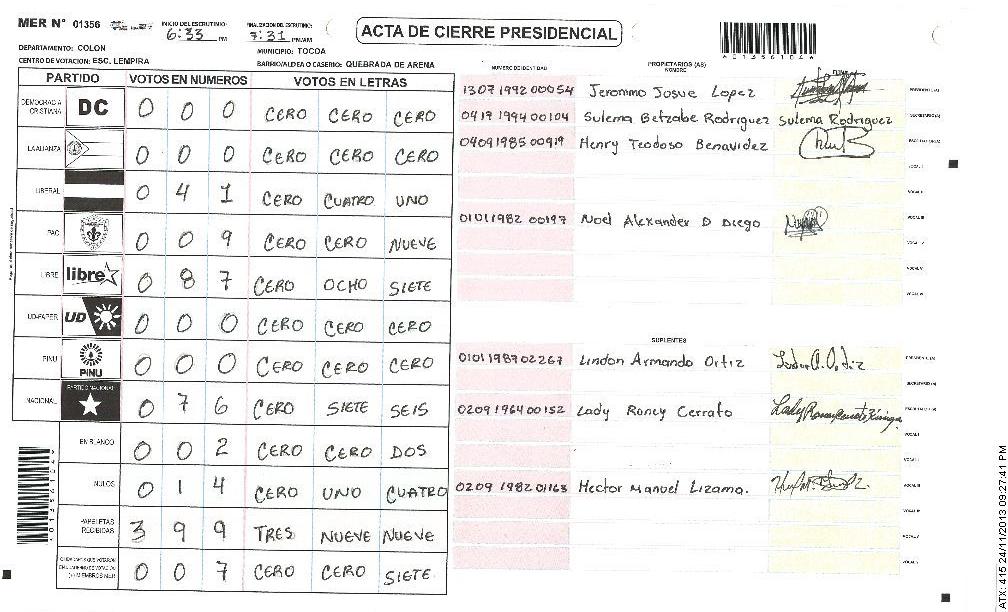 MER N° 01356
INICIO DEL ESCRUTINIO: 6:33 PM
FINALIZACION DEL ESCRUTINIO: 7:31 PM/AM
ACTA DE CIERRE PRESIDENCIAL
DEPARTAMENTO: COLON
MUNICIPIO: TOCOA
CENTRO DE VOTACION: ESC. LEMPIRA
BARRIO/ALDEA O CASERIO: QUEBRADA DE ARENA
PARTIDO VOTOS EN NUMEROS VOTOS EN LETRAS
DEMOCRACIA CRISTIANA DC 0 0 0 CERO CERO CERO
LA ALIANZA 0 0 0 CERO CERO CERO
LIBERAL 0 4 1 CERO CUATRO UNO
PAC 0 0 9 CERO CERO NUEVE
LIBRE libre 0 8 7 CERO OCHO SIETE
UD-FAPER UD 0 0 0 CERO CERO CERO
PINU PINU 0 0 0 CERO CERO CERO
NACIONAL PARTIDO NACIONAL 0 7 6 CERO SIETE SEIS
EN BLANCO 0 0 2 CERO CERO DOS
NULOS 0 1 4 CERO UNO CUATRO
PAPELETAS RECIBIDAS 3 9 9 TRES NUEVE NUEVE
CIUDADANOS QUE VOTARON 0 0 7 CERO CERO SIETE
NUMERO DE IDENTIDAD
PROPIETARIOS (AS)
NOMBRE
FIRMA
1307 1992 00054 Jeronimo Josue Lopez PRESIDENTE(A)
0419 1994 00104 Sulema Betzabe Rodriguez Sulema Rodriguez SECRETARIO(A)
0409 1985 00919 Henry Teodoso Benavidez ESCRUTADOR(A)
VOCAL I
VOCAL II
0101 1982 00197 Noel Alexander D Diego VOCAL III
VOCAL IV
VOCAL V
VOCAL VI
SUPLENTES
0101 1987 02267 Lindon Armando Ortiz PRESIDENTE(A)
SECRETARIO(A)
0209 1964 00152 Lady Roncy Cerrato ESCRUTADOR(A)
VOCAL I
VOCAL II
0209 1982 01163 Hector Manuel Lizama. VOCAL III
VOCAL IV
VOCAL V
VOCAL VI
ATX: 415 24/11/2013 09:27:41 PM